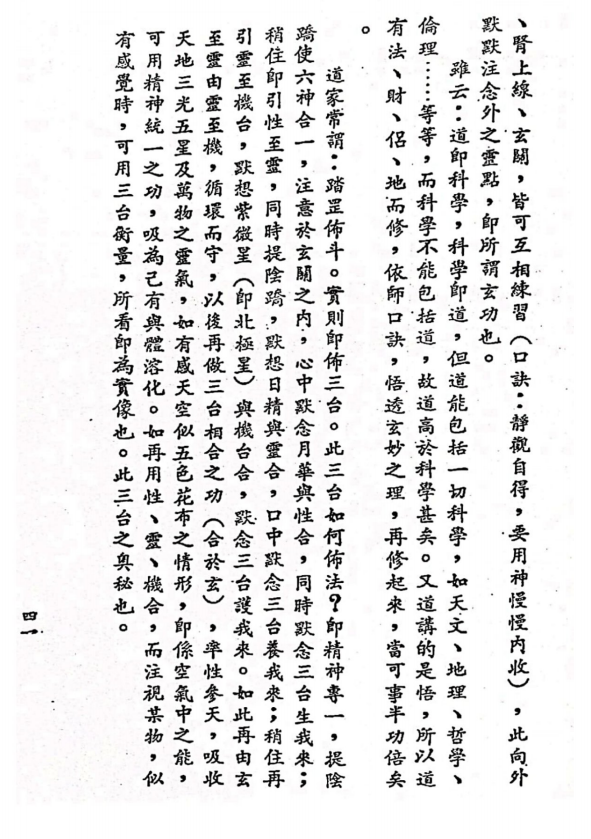 、腎上線、玄關，皆可互相練習（口訣：靜觀自得，要用神慢慢內收），此向外
默默注念外之靈點，即所謂玄功也。
雖云：道即科學，科學即道，但道能包括一切科學，如天文、地理、哲學、
倫理……等等，而科學不能包括道，故道高於科學甚矣。又道講的是悟，所以道
有法、財、侶、地而修，依師口訣，悟透玄妙之理，再修起來，當可事半功倍矣
。
道家常謂：踏罡佈斗。實則即佈三台。此三台如何佈法？即精神專一，提陰
蹻使六神合一，注意於玄關之內，心中默念月華與性合，同時默念三台生我來；
稍住即引性至靈，同時提陰蹻，默想日精與靈合，口中默念三台養我來；稍住再
引靈至機台，默想紫微星（即北極星）與機台合，默念三台護我來。如此再由玄
至靈由靈至機，循環而守，以後再做三台相合之功（合於玄），率性參天，吸收
天地三光五星及萬物之靈氣，如有感天空似五色花布之情形，即係空氣中之能，
可用精神統一之功，吸為己有與體溶化。如再用性、靈、機合，而注視某物，似
有感覺時，可用三台衡量，所看即為實像也。此三台之奧秘也。
四一